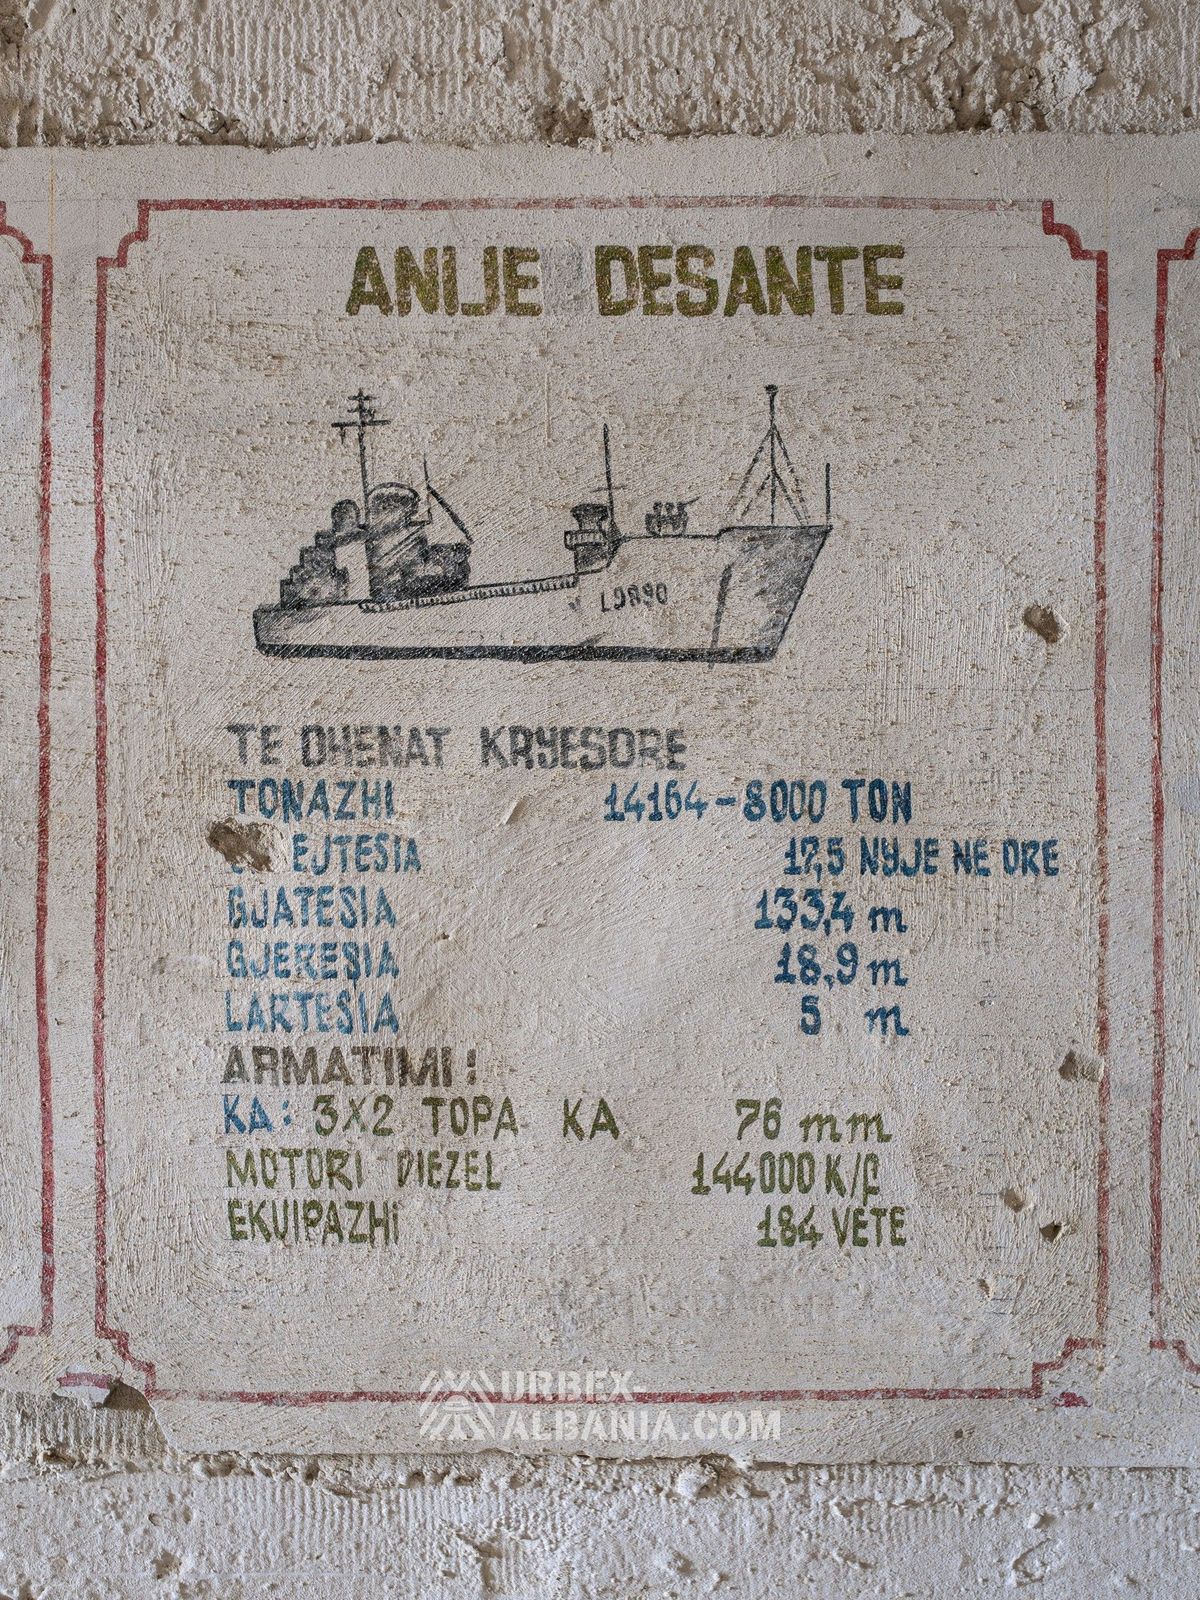 ANIJE DESANTE
TE DHENAT KRYESORE
TONAZHI 14164-8000 TON
EJTESIA 17,5 NYJE NE ORE
GJATESIA 133,4 m
GJERESIA 18,9 m
LARTESIA 5 m
ARMATIMI:
KA: 3X2 TOPA KA 76 mm
MOTORI DIEZEL 144000 K/f
EKUIPAZHi 184 VETE
URBEX
ALBANIA.COM